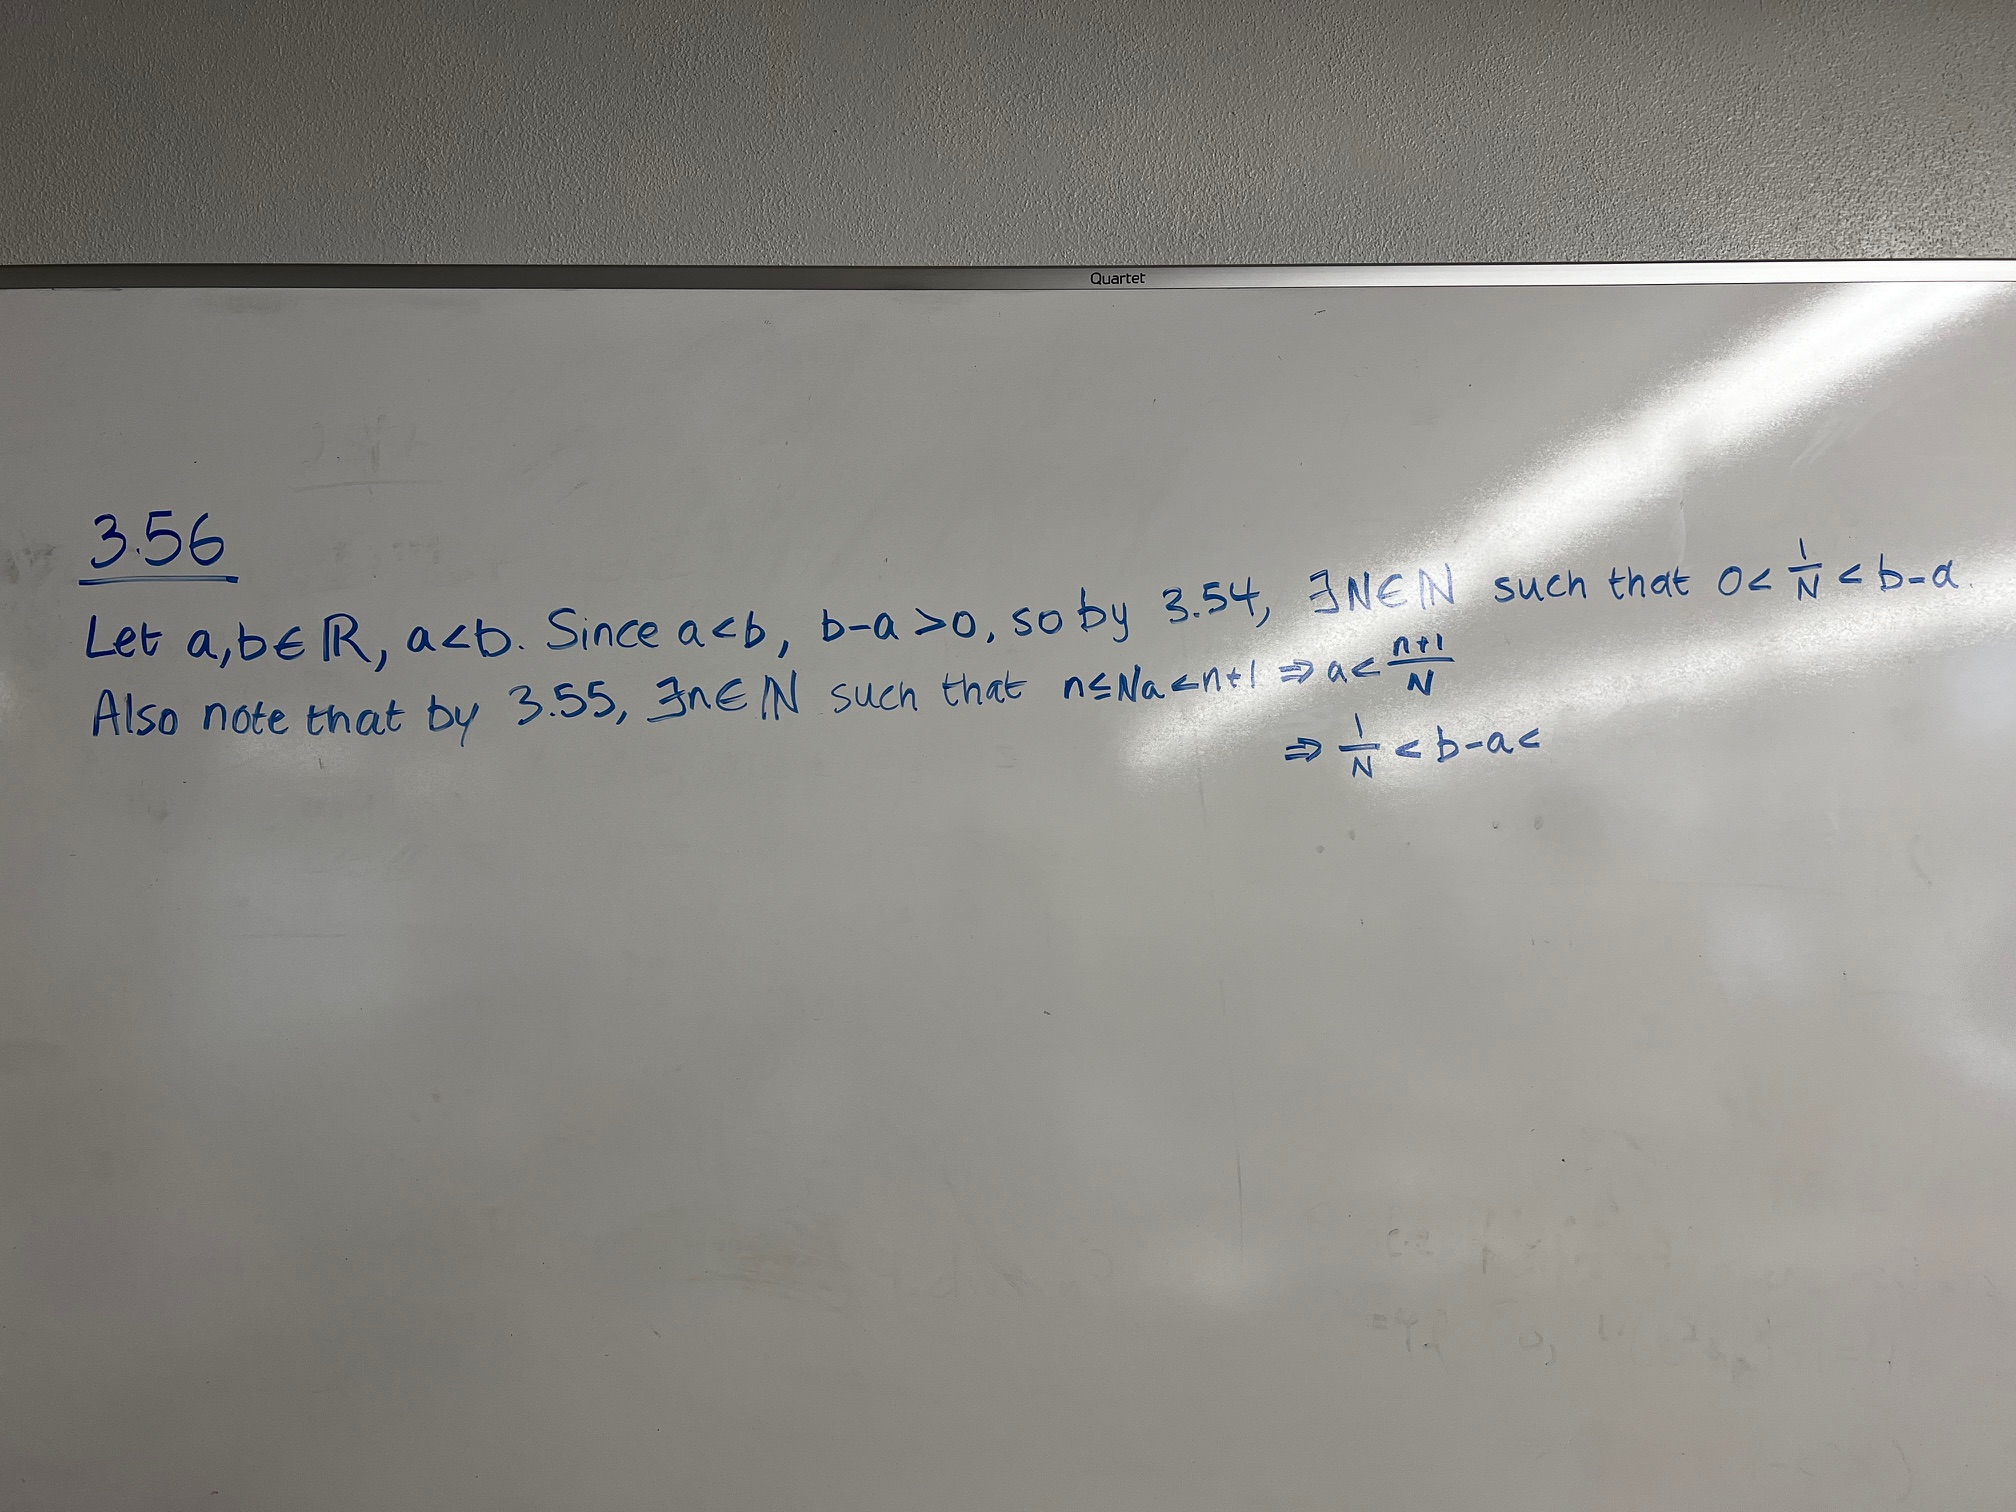 Quartet
3.56
Let a,b∈ℝ, a<b. Since a<b, b-a>0, so by 3.54, ∃N∈ℕ such that 0<1/N<b-a.
Also note that by 3.55, ∃n∈ℕ such that n≤Na<n+1 ⇒ a<(n+1)/N
⇒ 1/N<b-a<